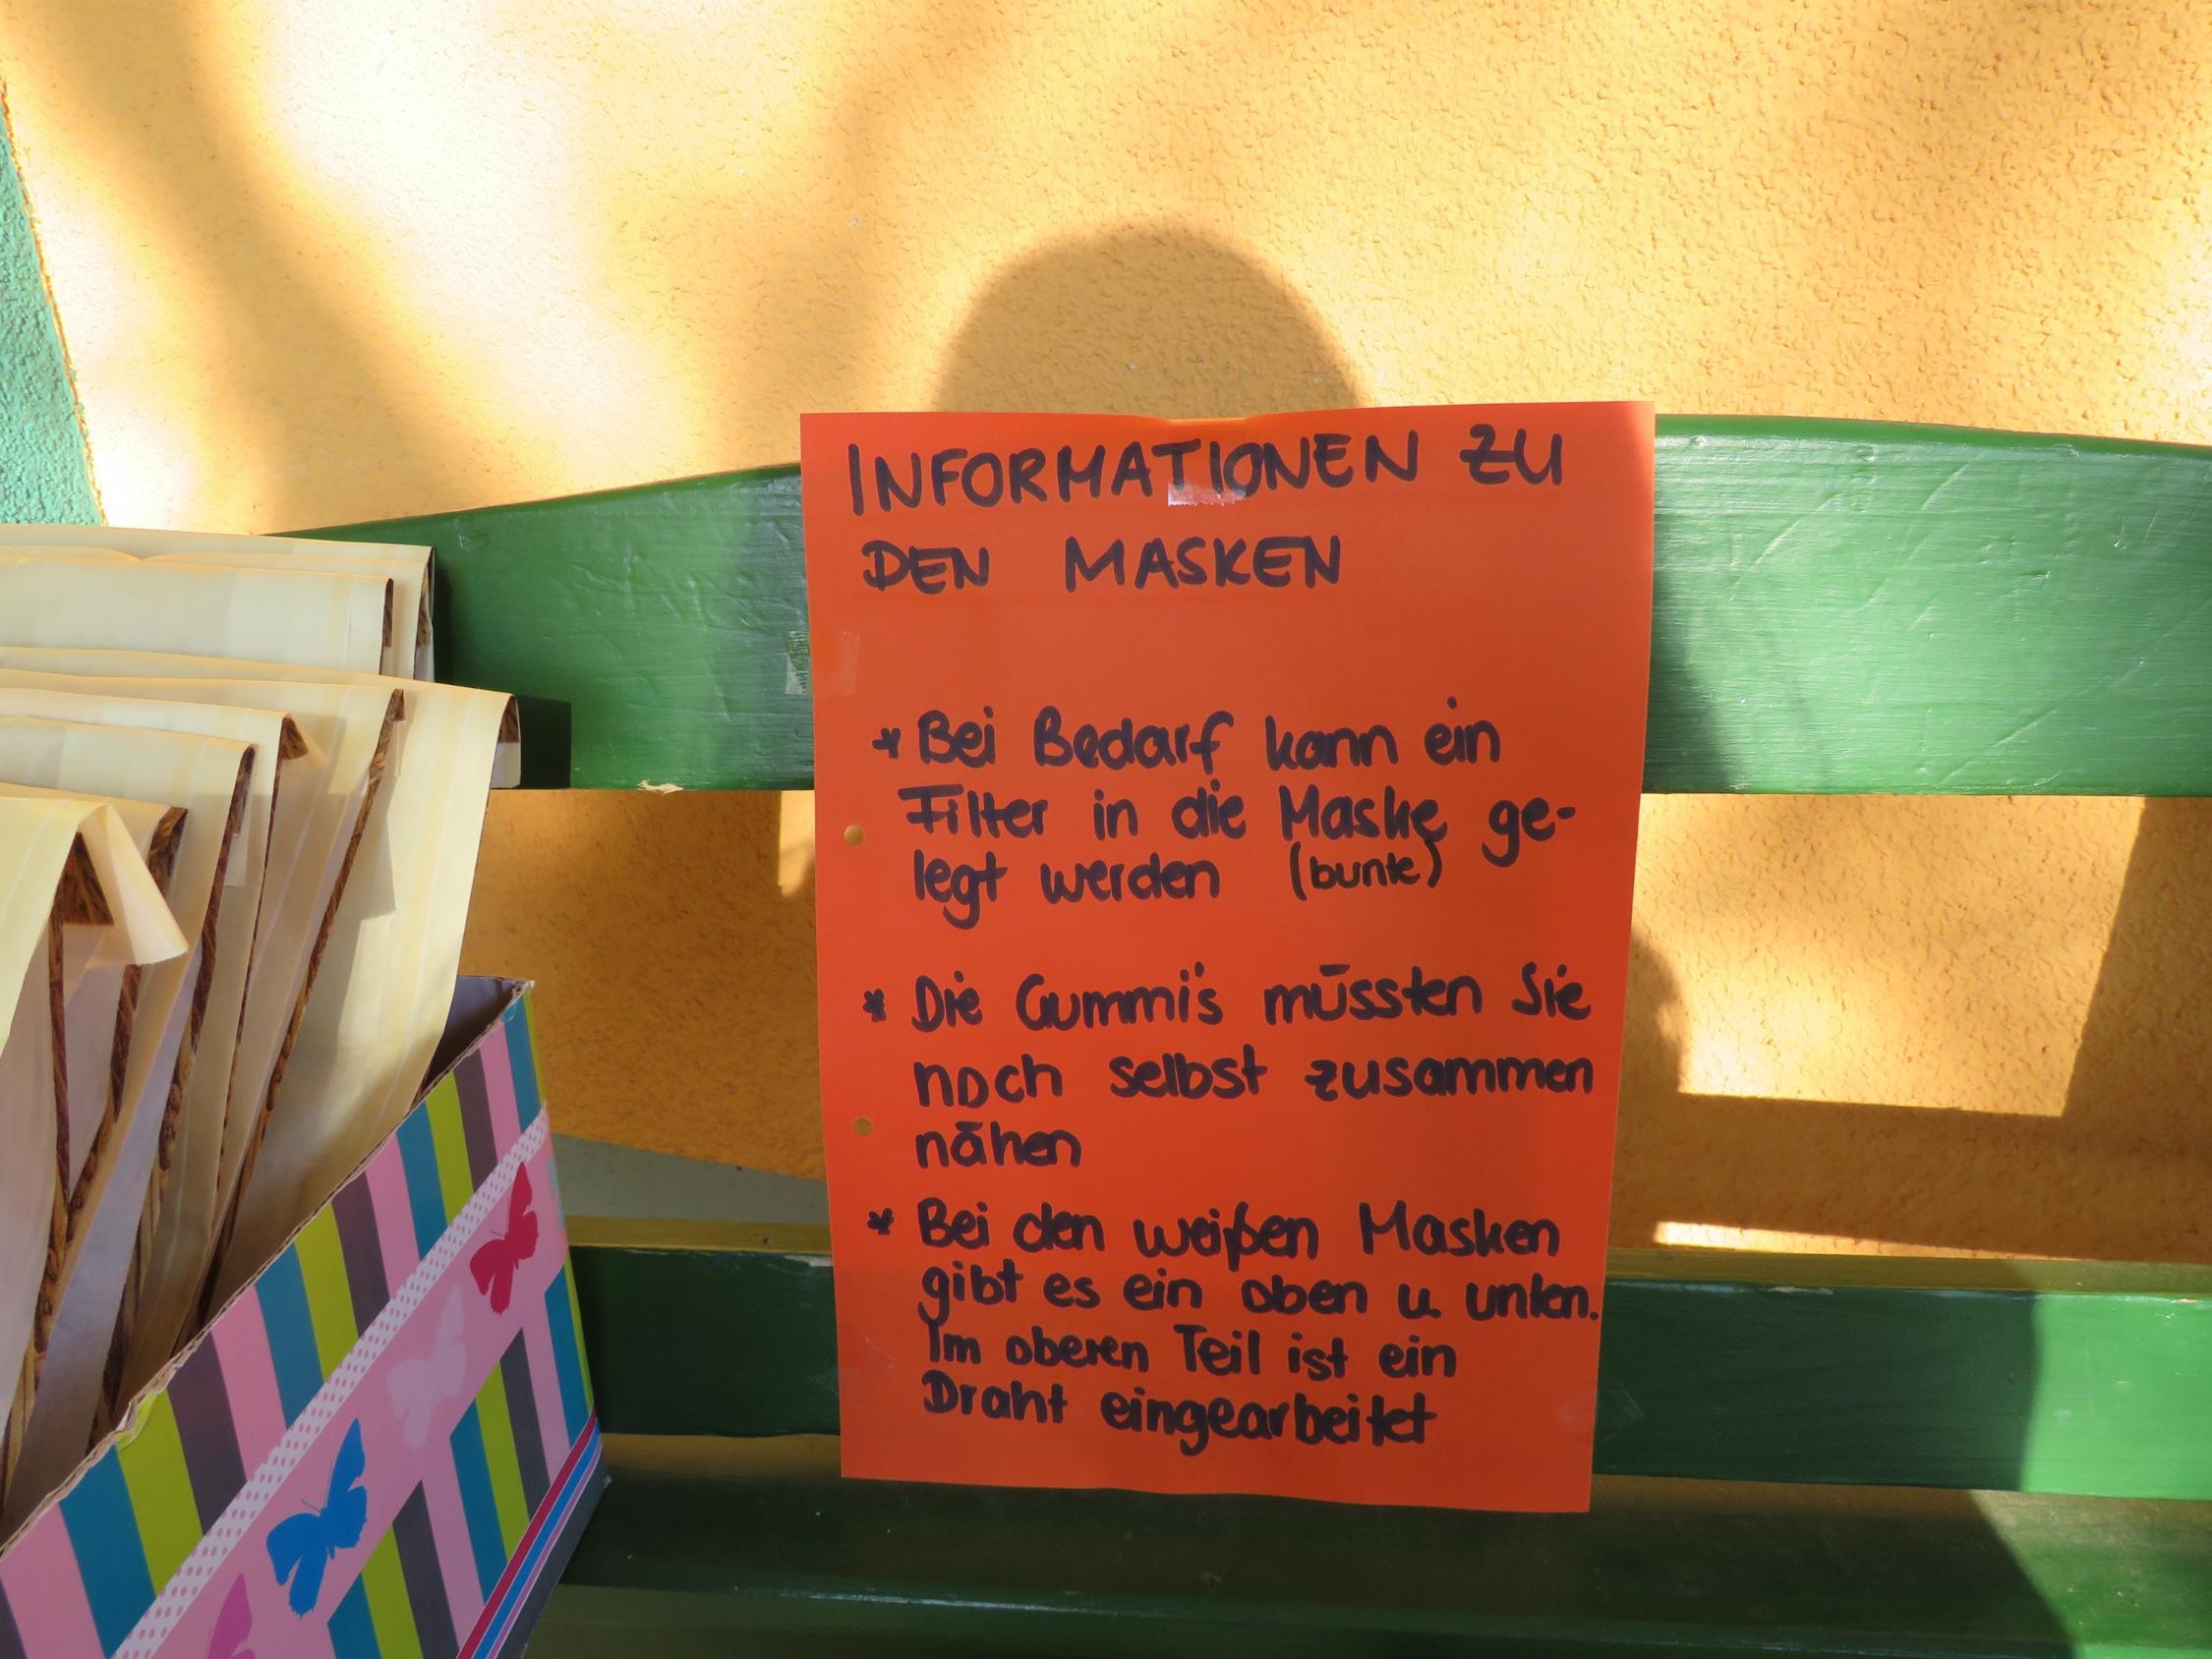 INFORMATIONEN ZU
DEN MASKEN
* Bei Bedarf kann ein
Filter in die Maske ge-
legt werden (bunte)
* Die Gummi's müssten Sie
noch selbst zusammen
nähen
* Bei den weißen Masken
gibt es ein oben u. unten.
Im oberen Teil ist ein
Draht eingearbeitet